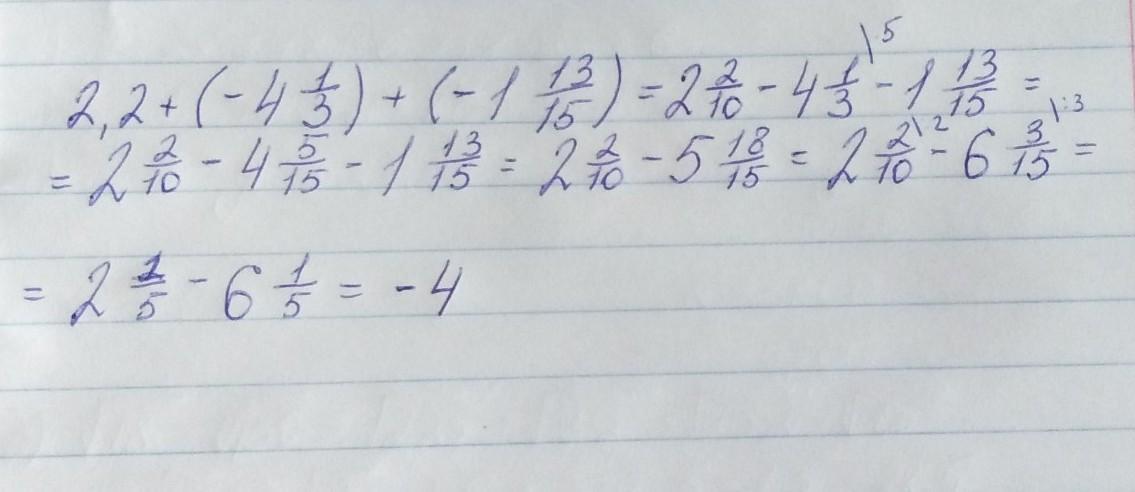 2,2 + (-4 1/3) + (-1 13/15) = 2 2/10 - 4 1/3 \5 - 1 13/15 =
= 2 2/10 - 4 5/15 - 1 13/15 = 2 2/10 - 5 18/15 = 2 2/10 \2 - 6 3/15 \:3 =
= 2 1/5 - 6 1/5 = -4